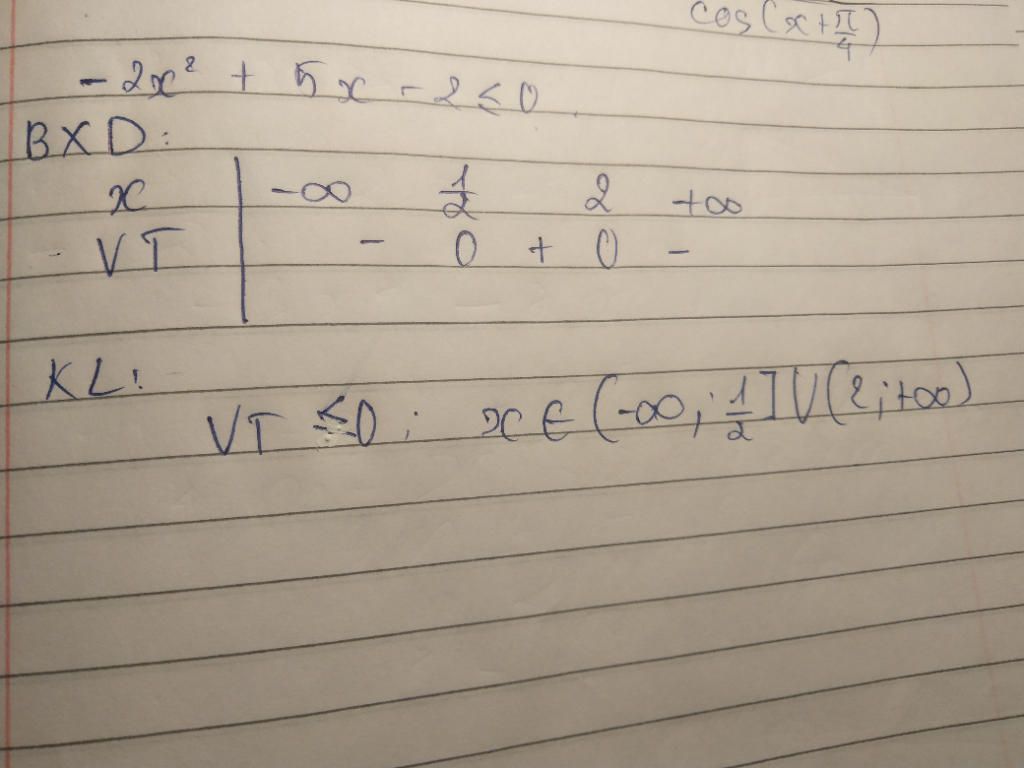 cos(x+π/4)
-2x² + 5x - 2 ≤ 0.
BXD:
x | -∞ 1/2 2 +∞
VT | - 0 + 0 -
KL:
VT ≤0; x ∈ (-∞; 1/2] U (2;+∞)